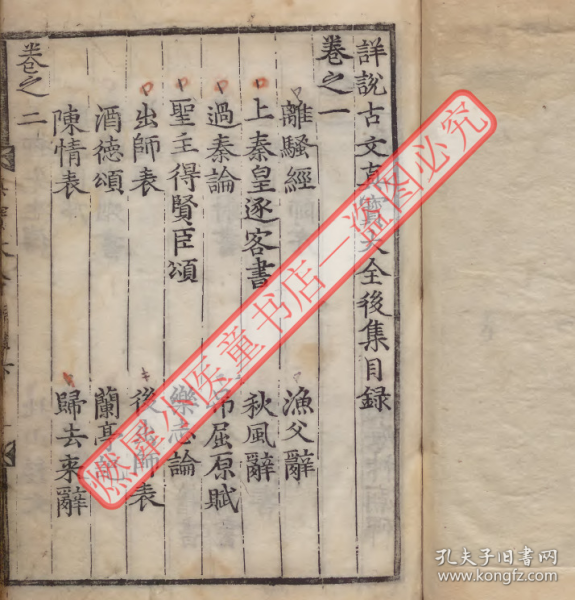 詳說古文真寶大全後集目録
卷之一
離騷經 漁父辭
上秦皇逐客書 秋風辭
過秦論 吊屈原賦
聖主得賢臣頌 樂志論
出師表 後出師表
酒德頌 蘭亭
陳情表 歸去來辭
卷之二
燃犀小医童书店—盗图必究
孔夫子旧书网
www.kongfz.com